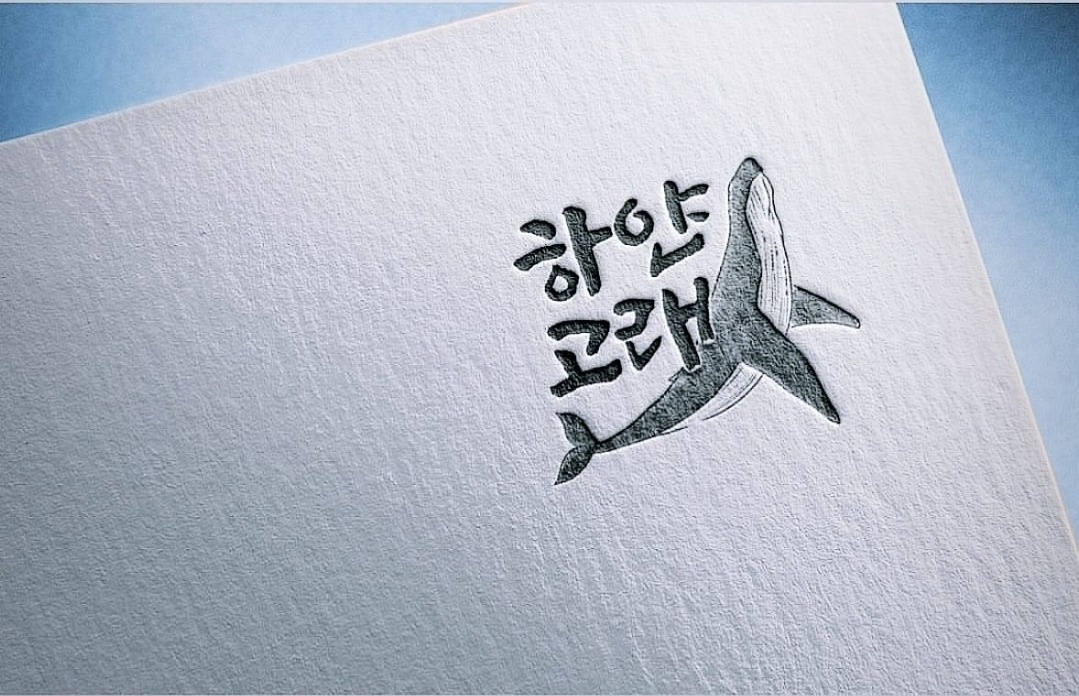 하얀
고래